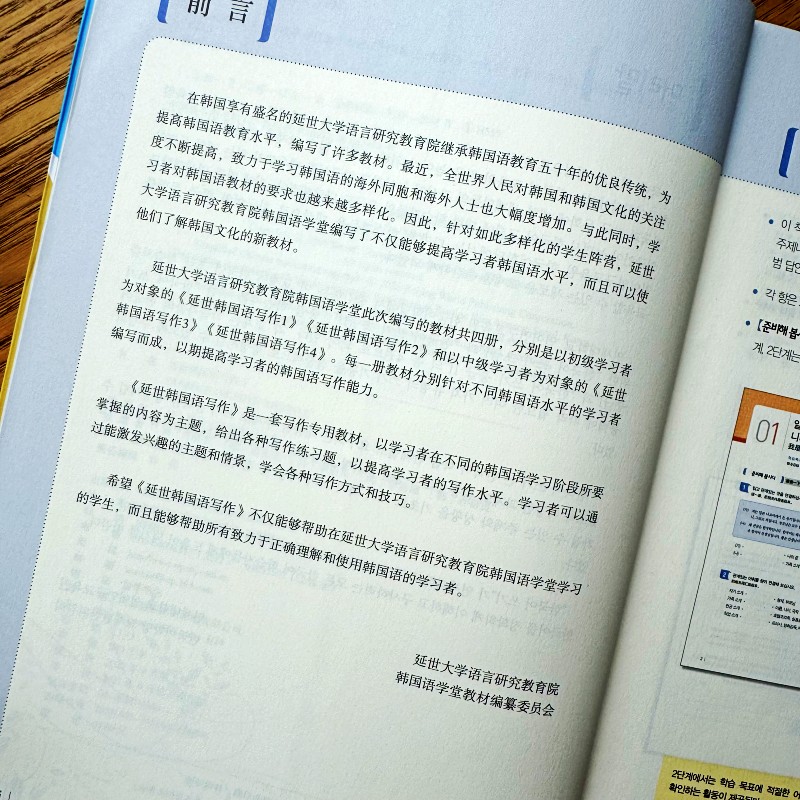 前言
在韩国享有盛名的延世大学语言研究教育院继承韩国语教育五十年的优良传统，为
提高韩国语教育水平，编写了许多教材。最近，全世界人民对韩国和韩国文化的关注
度不断提高，致力于学习韩国语的海外同胞和海外人士也大幅度增加。与此同时，学
习者对韩国语教材的要求也越来越多样化。因此，针对如此多样化的学生阵营，延世
大学语言研究教育院韩国语学堂编写了不仅能够提高学习者韩国语水平，而且可以使
他们了解韩国文化的新教材。
延世大学语言研究教育院韩国语学堂此次编写的教材共四册，分别是以初级学习者
为对象的《延世韩国语写作1》《延世韩国语写作2》和以中级学习者为对象的《延世
韩国语写作3》《延世韩国语写作4》。每一册教材分别针对不同韩国语水平的学习者
编写而成，以期提高学习者的韩国语写作能力。
《延世韩国语写作》是一套写作专用教材，以学习者在不同的韩国语学习阶段所要
掌握的内容为主题，给出各种写作练习题，以提高学习者的写作水平。学习者可以通
过能激发兴趣的主题和情景，学会各种写作方式和技巧。
希望《延世韩国语写作》不仅能够帮助在延世大学语言研究教育院韩国语学堂学习
的学生，而且能够帮助所有致力于正确理解和使用韩国语的学习者。
延世大学语言研究教育院
韩国语学堂教材编纂委员会
이
주제
범 답안
각 항은
계, 2단계는
01
2단계에서는 학습 목표에 적절한 어